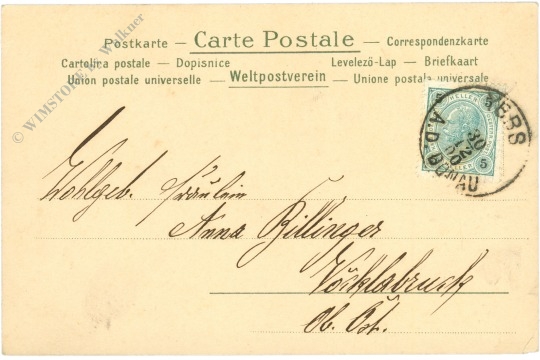 Postkarte — Carte Postale — Correspondenzkarte
Cartolina postale — Dopisnice Levelező-Lap — Briefkaart
Union postale universelle — Weltpostverein — Unione postale universale
© WIMSTORE W. Walkner
YBBS
30
12
00
A.D. DONAU
HELLER
5
Wohlgeb. Fräulein
Anna Billinger
Vöcklabruck
Ob. Öst.